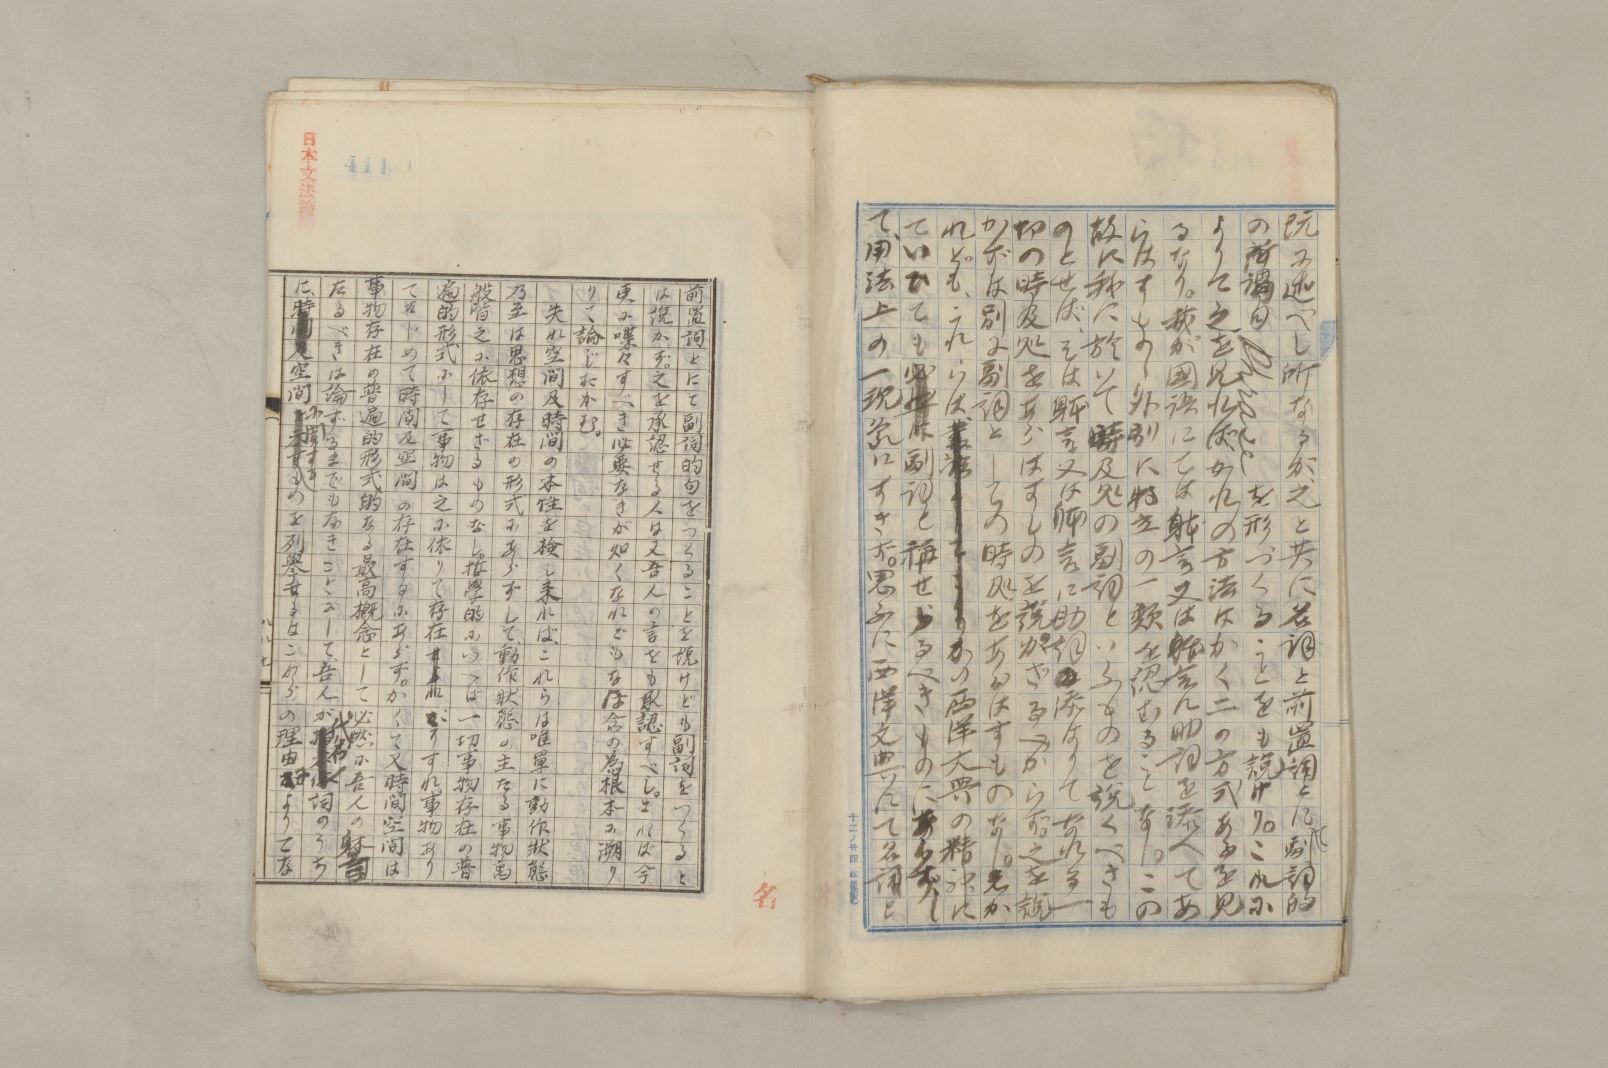 既に述べし所なるが、之と共に名詞と前置詞とにて副詞的
の所謂句 Phrase を形づくることをも説けり。これに
よりて之を見ればかれの方法はかく二の方式あるを見
るなり。我が國語にては躰言又は躰言に助詞を添へてあ
らはすもの外別に特立の一類を認むることなし。この
故に我に於いて時及処の副詞といふものを説くべきも
のとせば、そは躰言又は躰言に助詞の添はりてなれる一
切の時及処をあらはすものを説かざるべからず。之を説
かずは別に副詞としての時処をあらはすものなし。しか
れども、これらは かの西洋文典の精神に
ていひても 副詞と稱せらるべきものにあらずし
て、用法上の一現象にすぎず。思ふに西洋文典にて名詞と
日本文法論
411
前置詞とにて副詞的句をつくることを説けども副詞をつくると
は説かず。之を承認せる人は又吾人の言をも承認すべし。されば今
更に喋々すべき必要なきが如くなれどもなほ念の為根本に溯り
りて論じおかむ。
夫れ空間及時間の本性を檢し來れば、これらは唯單に動作状態
乃至は思想の存在の形式にあらずして、動作状態の主たる事物萬
般皆之に依存せざるものなし。哲學的にいへば一切事物存在の普
遍的形式にして事物は之に依りて存在 すれ、事物あり
てはじめて時間及空間の存在するにあらず。かくて又時間空間は
事物存在の普遍的形式的なる最高概念として必然に吾人の躰言
たるべきは論ずるまでもなきことにして、吾人が 代名詞のうち
に、空間に関するものを列擧せるはこれらの理由によりてな
名